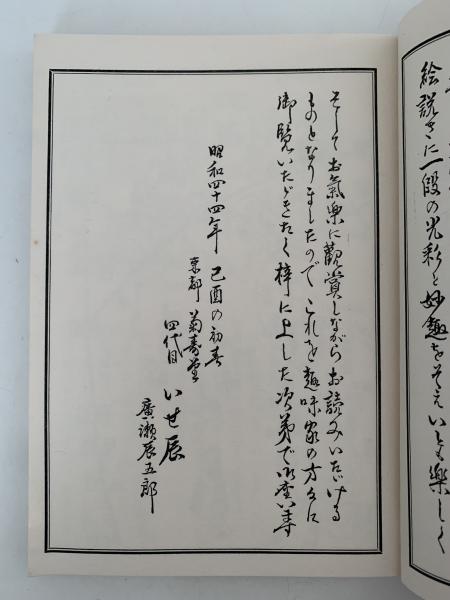 絵説きに一段の光彩と妙趣をそえいとも楽しく
そしてお氣楽に觀賞しながらお読みいただける
ものとなりましたので これを趣味家の方々に
御覧いただきたく梓に上した次第で御座います
昭和四十四年 己酉の初春
東都 菊寿堂
四代目 いせ辰
廣瀬辰五郎